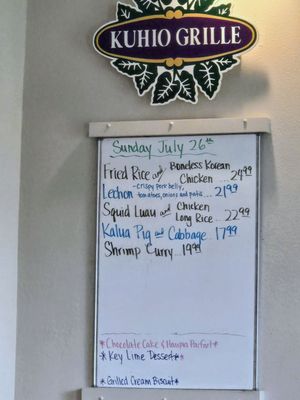 KUHIO GRILLE
Sunday July 26th
Fried Rice and Boneless Korean
Chicken ... 24.99
Lechon - crispy pork belly,
tomatoes, onions and patis ... 21.99
Squid Luau and Chicken
Long Rice .. 22.99
Kalua Pig and Cabbage .. 17.99
Shrimp Curry .. 19.99
*Chocolate Cake & Haupia Parfait*
*Key Lime Dessert*
*Grilled Cream Biscuit*